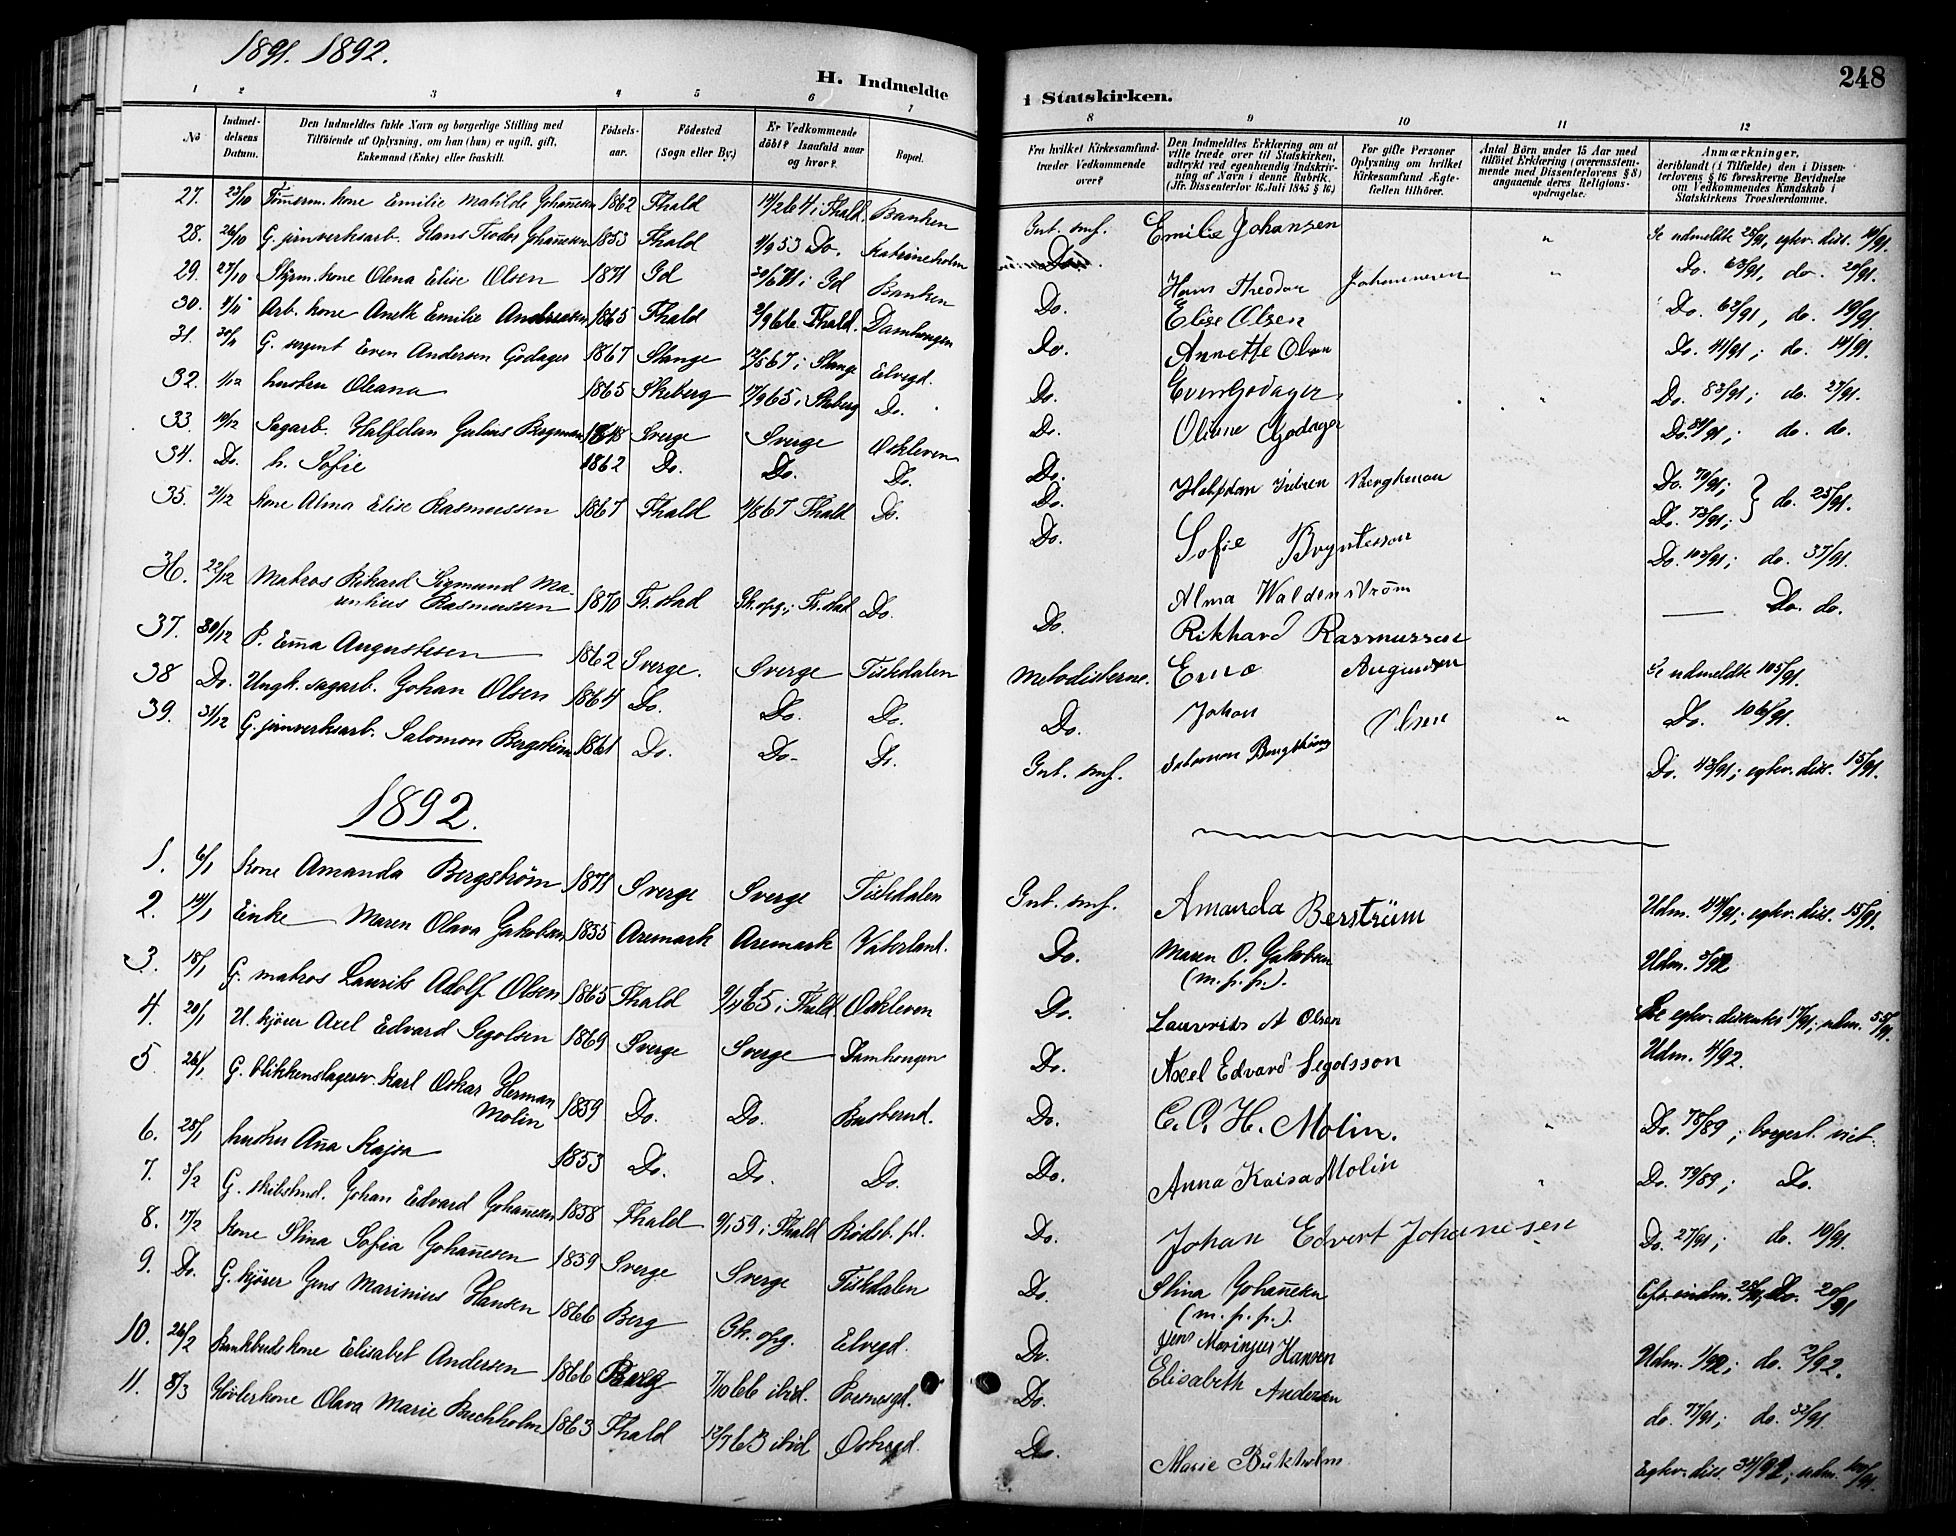 1891. 1892.
H. Indmeldte
i Statskirken.
248
1 2 3 4 5 6 7
8 9 10 11 12
No
Indmeldelsens Datum.
Den Indmeldtes fulde Navn og borgerlige Stilling med Tilföiende af Oplysning, om han (hun) er ugift, gift, Enkemand (Enke) eller fraskilt.
Födselsaar.
Födested (Sogn eller By.)
Er Vedkommende döbt? Isaafald naar og hvor?
Bopæl.
Fra hvilket Kirkesamfund træder Vedkommende over?
Den Indmeldtes Erklæring om at ville træde over til Statskirken, udtrykt ved egenhændig Indskrivning af Navn i denne Rubrik. (Jfr. Dissenterlov 16. Juli 1845 § 16)
For gifte Personer Oplysning om hvilket Kirkesamfund Ægtefællen tilhörer.
Antal Börn under 15 Aar med tilföiet Erklæring (overensstemmende med Dissenterlovens § 8) angaaende deres Religionsopdragelse.
Anmærkninger, deriblandt (i Tilfælde) den i Dissenterlovens § 16 foreskrevne Bevidnelse om Vedkommendes Kundskab i Statskirkens Troeslærdomme.
27. 23/10 Tömerm. kone Emilie Matilde Johanesen 1862 Fhald 14/2 64 i Fhald. Banken Int. smf. Emilie Johansen " Se udmeldte 28/91, eghv. diss. 10/91.
28. 26/10 G. jernverksarb. Hans Teodor Johanesen 1853 Fhald 4/9 53 Do. Katrineholm Do. Hans Theodor Johannesen " Do. 63/91, do. 20/91.
29. 27/10 Styrm. kone Olena Elise Olsen 1871 Id 30/6 71 i Id Banken Do. Elise Olsen Do. 62/91, do. 19/91.
30. 4/11 Arb. kone Aneth Emilie Andreasen 1865 Fhald 2/9 66 Fhald. Damhaugen Do. Annette Olsen Do. 41/91; do. 14/91.
31. 30/11 G. sergent Even Andersen Godager 1867 Stange 12/5 67 i Stange Elvegd. Do. Even Godager Do. 83/91; do. 27/91.
32. 1/12 hustru Oleana 1865 Skeberg 17/9 65 i Skeberg Do. Do. Oliane Godager Do. 84/91; do. do.
33. 19/12 Sagarb. Halfdan Julius Bergman 1868 Sverge Sverge Oskleven Do. Halfdan Berghman Do. 70/91;
34. Do. h. Sofie 1862 Do. Do. Do. Do. Sofie Bryntesson Do. 73/91; } do. 25/91.
35. 21/12 kone Alma Elise Rasmussen 1867 Fhald 4/8 67 Fhald Do. Do. Alma Waldenström Do. 102/91; do. 37/91.
36. 22/12 Matros Rikard Sigmund Marenius Rasmussen 1870 Fr.stad Gh. opg. i Fr.stad Do. Do. Rikhard Rasmussen — Do. do.
37. 30/12 P. Ema Augustesen 1862 Sverge. Sverge Tistedalen Metodisterne. Augustsen Se udmeldte 105/91.
38 Do. Ungk. sagarb. Johan Olsen 1864 Do. Do. Do. Do. Johan Olsen " Do. 106/91.
39. 31/12 G. jernverksarb. Salomon Bergström 1861 Do. Do. Do. Int. smf. Salomon Bergström Do. 43/91; eghv. diss. 15/91.
1892.
1. 6/1 kone Amanda Bergström 1871 Sverge Sverge Tistedalen Int. smf. Amanda Berström Udm. 44/91; eghv. diss. 15/91.
2. 14/1 Enke Maren Olava Jakobsen 1855 Aremark Aremark Vaterland. Do. Maren O. Jakobsen (m. p. p.). Udm. 3/92
3. 18/1 G. matros Laurits Adolf Olsen 1865 Fhald 9/4 65 i Fhald Oskleven Do. Lauvrits A Olsen Se eghv. dissenter 17/91; udm. 55/91.
4. 20/1 U. kjører Axel Edvard Segolsen 1869 Sverge Sverge Damhaugen Do. Axel Edvard Segolsson Udm. 4/92.
5. 26/1 G. blikkenslagersv. Karl Oskar Herman Molin 1859 Do. Do. Busterud. Do. C. O. H. Molin. " Do. 78/89; borgerl. viet.
6. 28/1 hustru Aña Kajsa 1853 Do. Do. Do. Do. Anna Kaisa Molin " Do. 79/89; Do.
7. 3/2 G. skibstmd. Johan Edvard Johanesen 1858 Fhald 9/1 59 i Fhald Rödsb. pl. Do. Johan Edvert Johanesen Do. 27/91; do. 10/91.
8. 17/2 kone Stina Sofia Johanesen 1859 Sverge Sverge Tistedalen Do. Stina Johanesen (m. p. p.). 20/91
9. Do. G. kjører Jens Marinius Hansen 1866 Berg Gh. opg. Elvegd. Do. Jens Marinjus Hansen Udm. 1/92; do. 2/92.
10. 26/2 Bankbuds kone Elisabet Andersen 1866 Berg 7/10 66 ibid. Do. Elisabeth Andersen do. 77/91; do. 32/91
11. 8/3 Hövlerkone Olava Marie Buchholm 1863 Fhald 12/7 63 ibid Do. Marie Bukholm Eghv. diss. 34/92; udm. 100/91